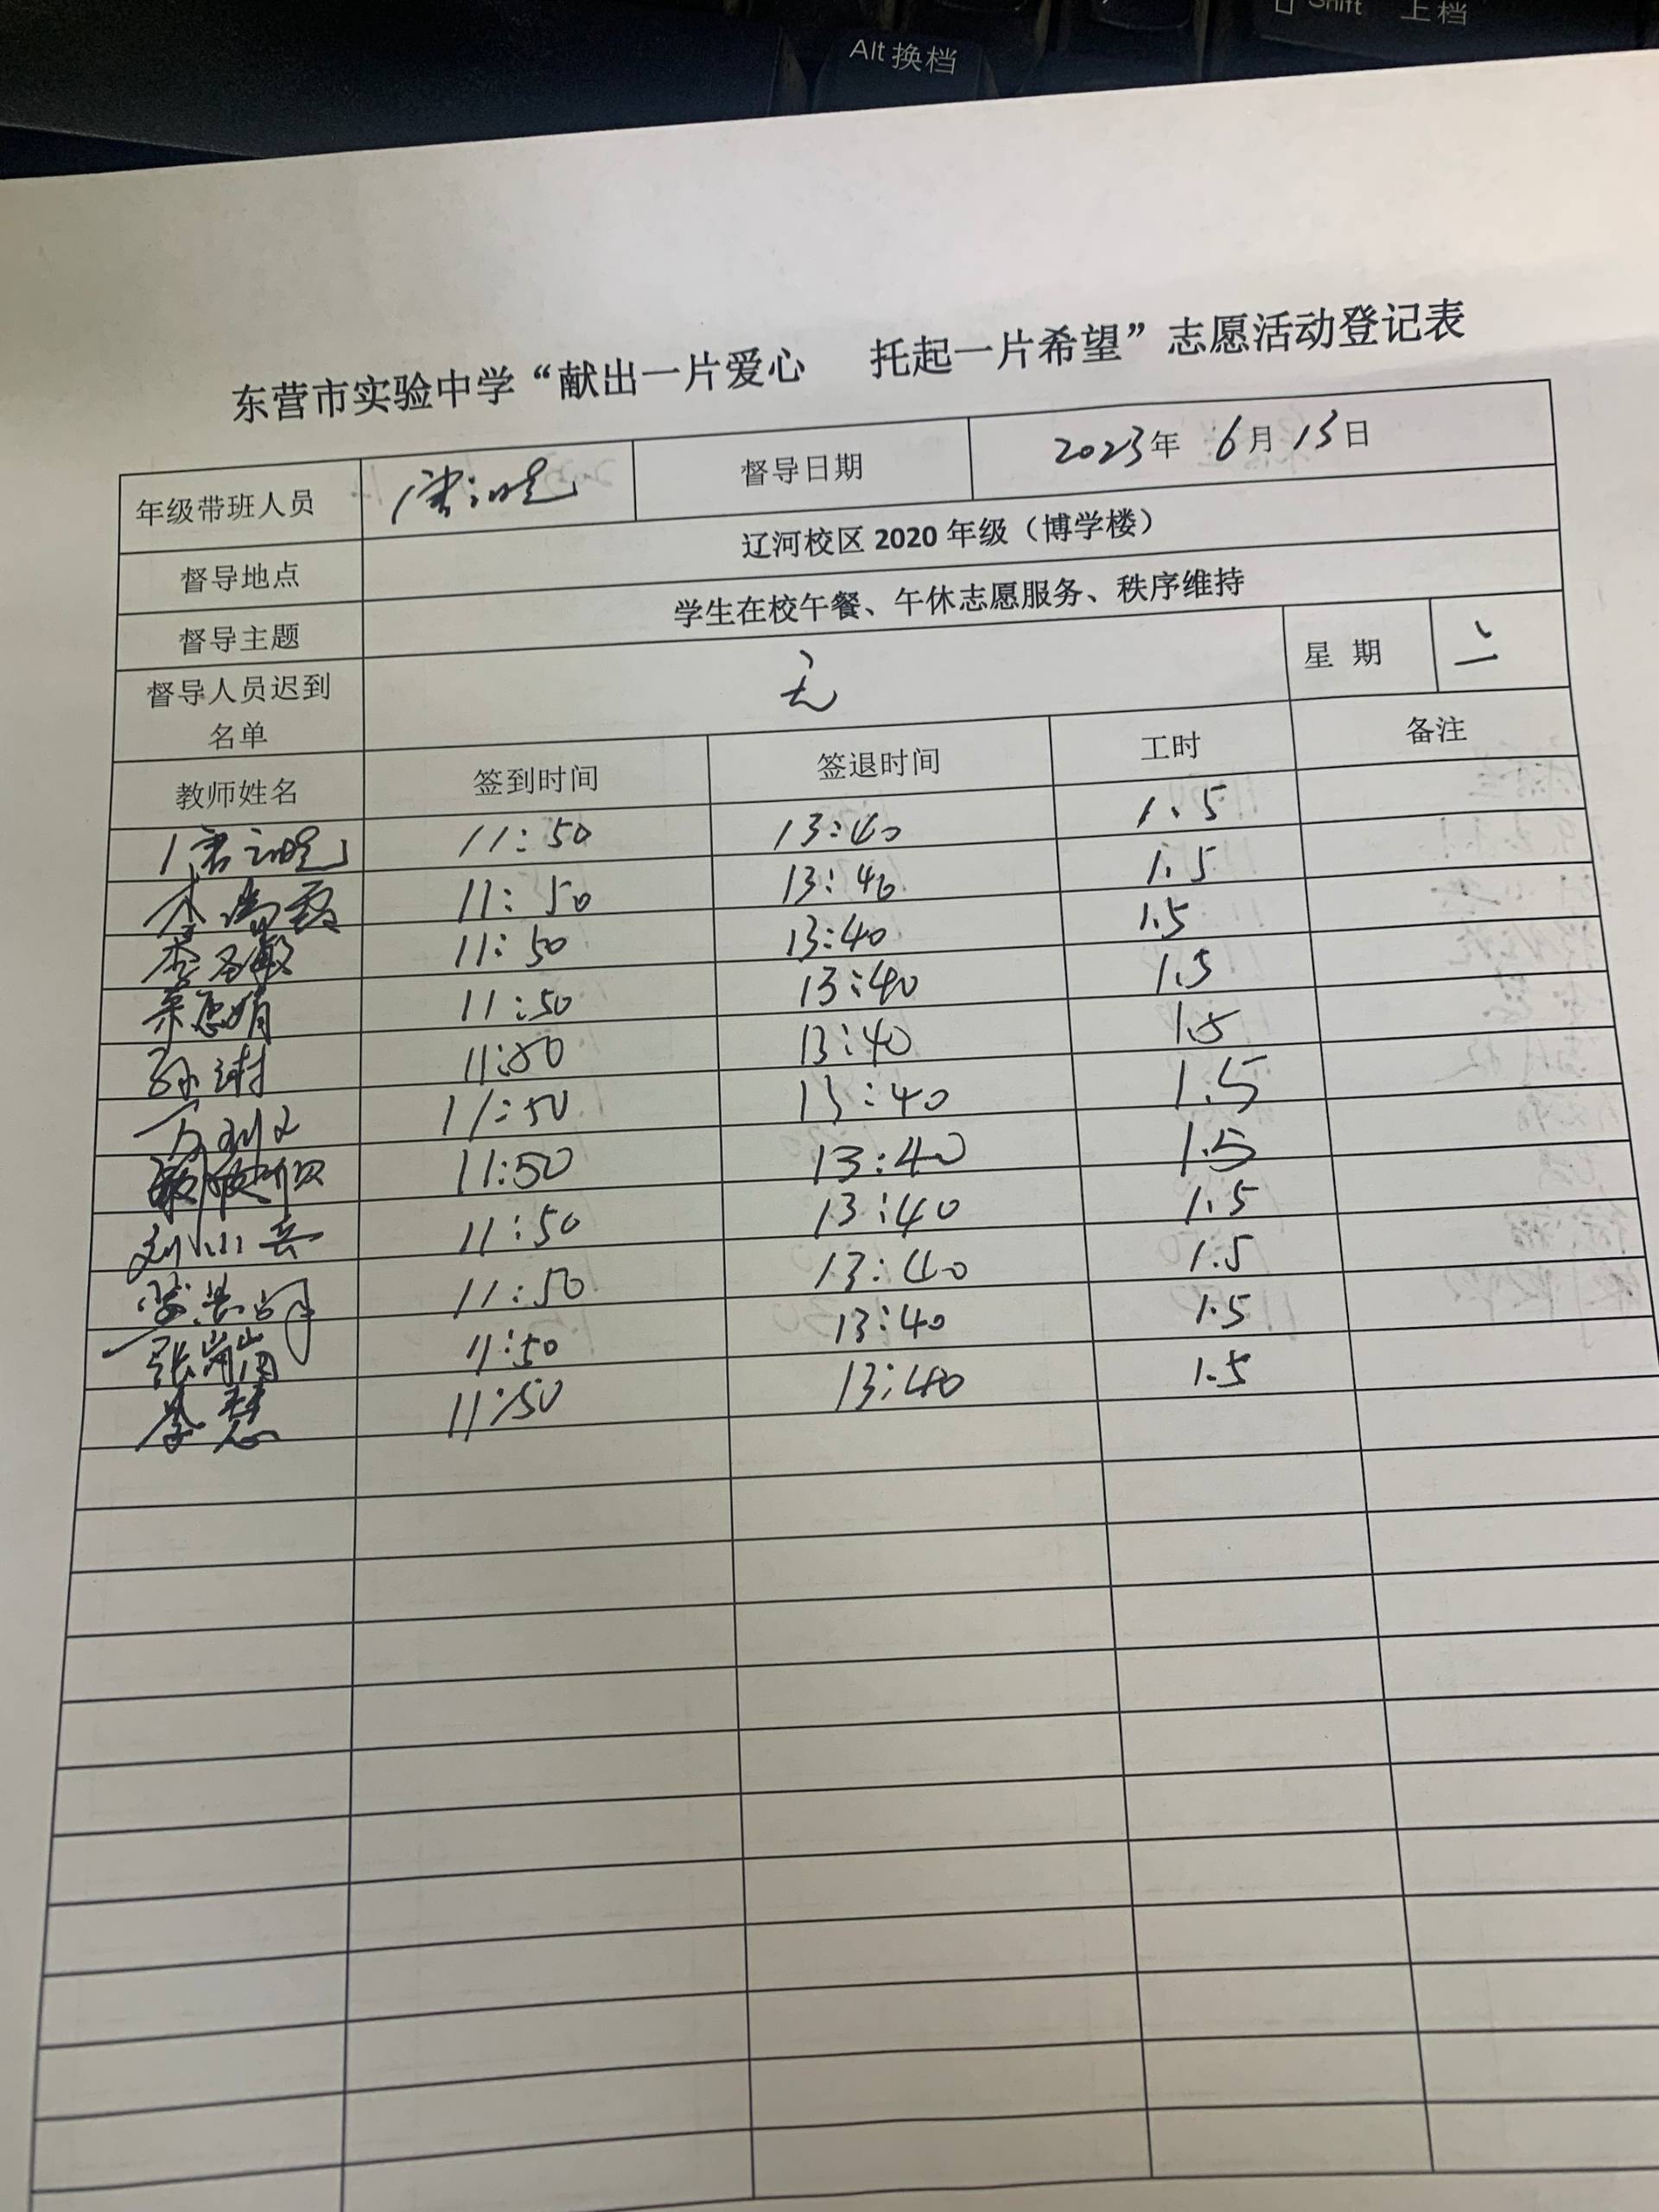 Alt 换档
Shift 上档
东营市实验中学“献出一片爱心 托起一片希望”志愿活动登记表
年级带班人员 督导日期 2023年 6月 13日
督导地点 辽河校区 2020 年级（博学楼）
督导主题 学生在校午餐、午休志愿服务、秩序维持
督导人员迟到名单 无 星 期 二
教师姓名 签到时间 签退时间 工时 备注
11:50 13:40 1.5
11:50 13:40 1.5
11:50 13:40 1.5
11:50 13:40 1.5
11:50 13:40 1.5
11:50 13:40 1.5
11:50 13:40 1.5
刘小兵 11:50 13:40 1.5
11:50 13:40 1.5
11:50 13:40 1.5
李慧 11:50 13:40 1.5